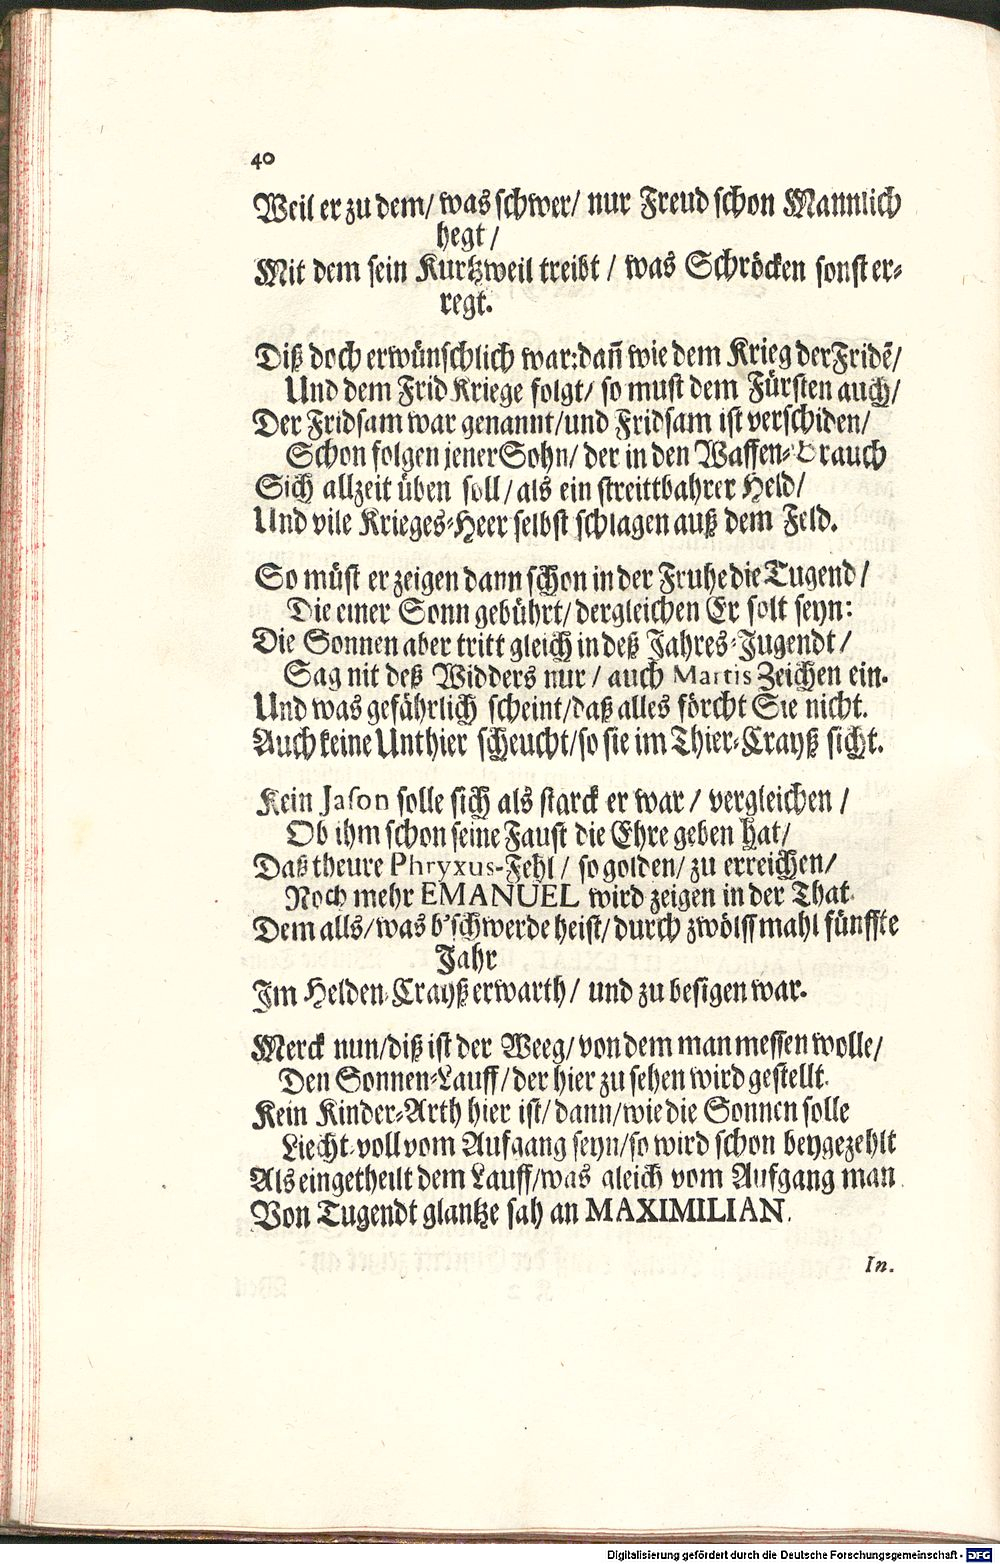 40
Weil er zu dem/ was schwer/ nur Freud schon Mannlich
hegt/
Mit dem sein Kurtzweil treibt/ was Schröcken sonst er-
regt.
Diß doch erwünschlich war: dañ wie dem Krieg der Fridẽ/
Und dem Frid Kriege folgt/ so must dem Fürsten auch/
Der Fridsam war genannt/ und Fridsam ist verschiden/
Schon folgen jener Sohn/ der in den Waffen-Brauch
Sich allzeit üben soll/ als ein streittbahrer Held/
Und vile Krieges-Heer selbst schlagen auß dem Feld.
So müst er zeigen dann schon in der Fruhe die Tugend/
Die einer Sonn gebührt/ dergleichen Er solt seyn:
Die Sonnen aber tritt gleich in deß Jahres-Jugendt/
Sag nit deß Widders nur/ auch Martis Zeichen ein.
Und was gefährlich scheint/ daß alles förcht Sie nicht.
Auch keine Unthier scheucht/ so sie im Thier-Crayß sicht.
Kein Jason solle sich als starck er war/ vergleichen/
Ob ihm schon seine Faust die Ehre geben hat/
Daß theure Phryxus-Fehl/ so golden/ zu erreichen/
Noch mehr EMANUEL wird zeigen in der That.
Dem alls/ was b'schwerde heist/ durch zwölff mahl fünffte
Jahr
Im Helden-Crayß erwarth/ und zu besigen war.
Merck nun/ diß ist der Weeg/ von dem man messen wolle/
Den Sonnen-Lauff/ der hier zu sehen wird gestellt.
Kein Kinder-Arth hier ist/ dann/ wie die Sonnen solle
Liecht-voll vom Aufgang seyn/ so wird schon beygezehlt
Als eingetheilt dem Lauff/ was gleich vom Aufgang man
Von Tugendt glantze sah an MAXIMILIAN.
In.
Digitalisierung gefördert durch die Deutsche Forschungsgemeinschaft - DFG